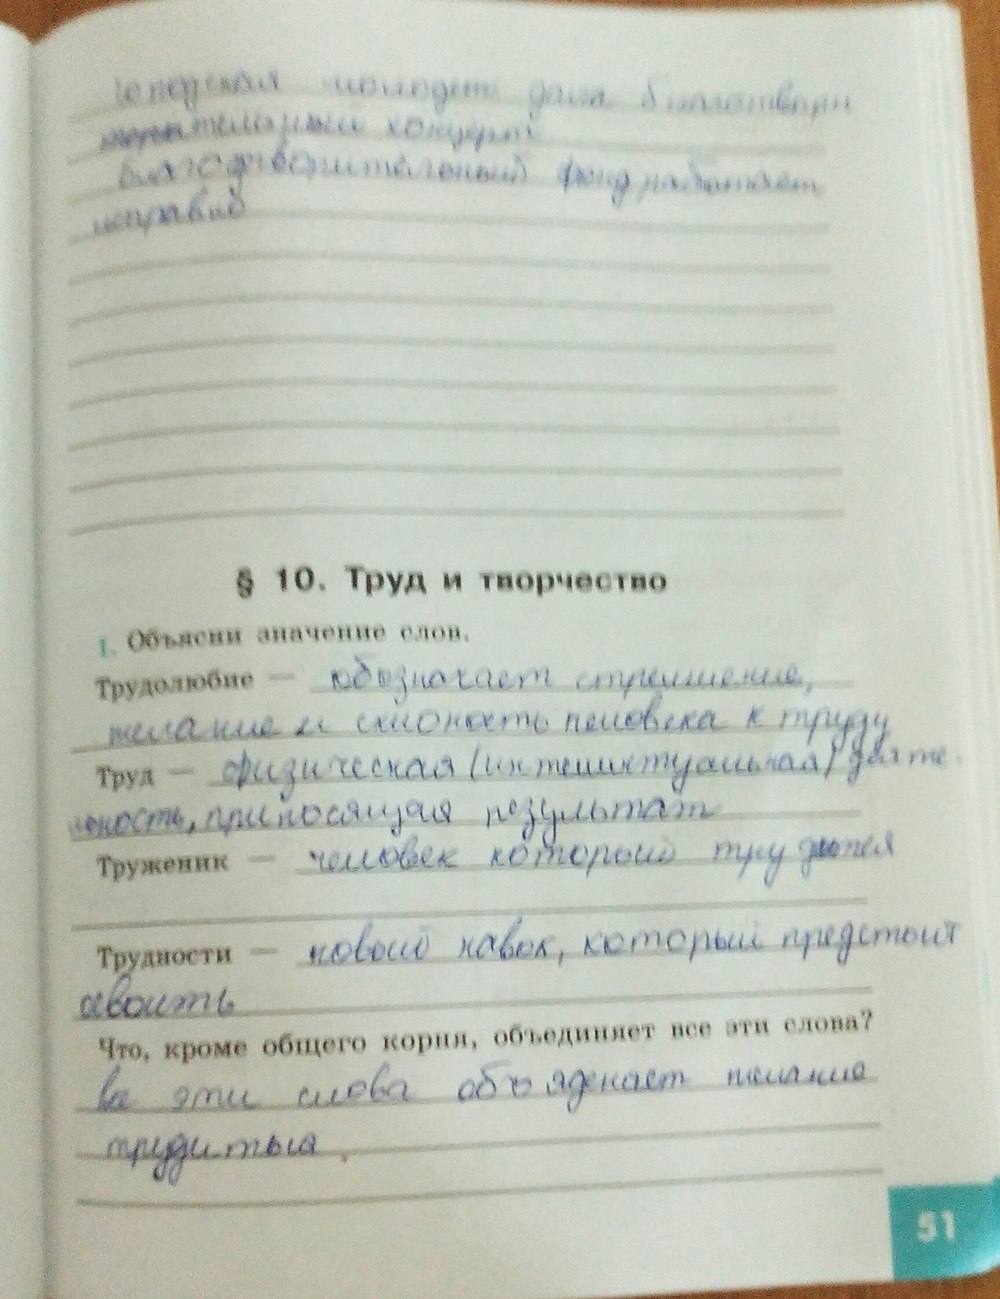 молодеж дала благотвори
тельный концерт
благотворительный фонд работает
исправно
§ 10. Труд и творчество
1. Объясни значение слов.
Трудолюбие — обозначает стремление,
желание и склоность человека к труду
Труд — физическая (интеллектуальная) деяте-
льность, приносящая результат
Труженик — человек который трудится
Трудности — новый навок, который предстоит
освоить
Что, кроме общего корня, объединяет все эти слова?
все эти слова объяденает желание
трудиться.
51